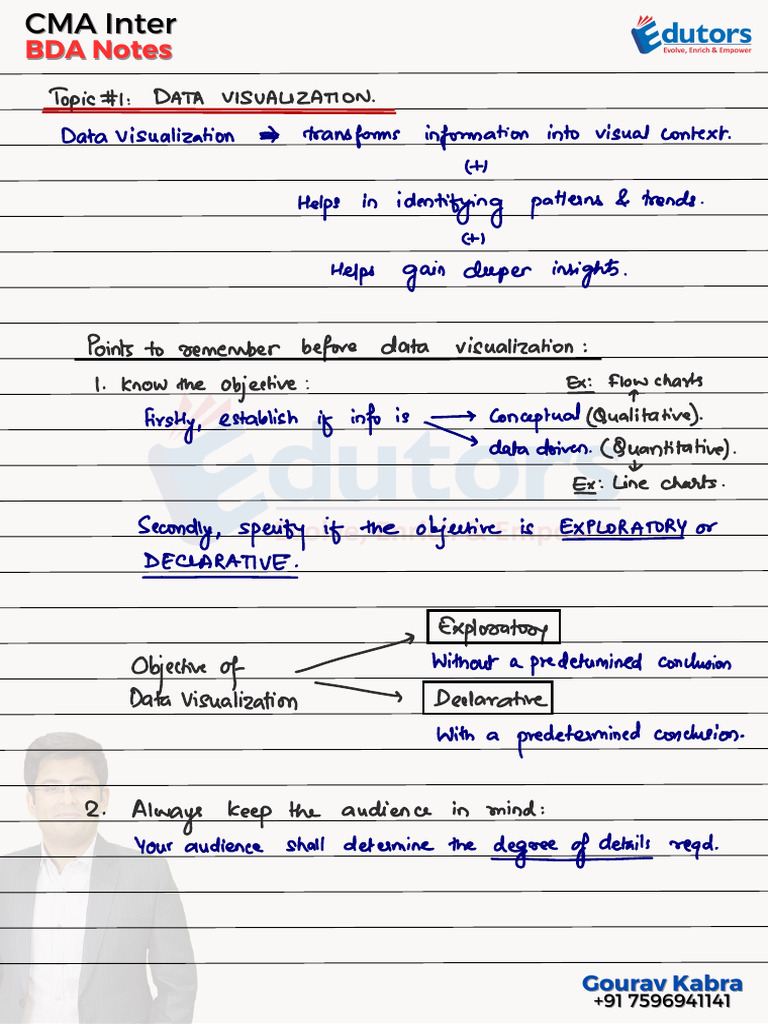 CMA Inter
BDA Notes
Edutors
Evolve, Enrich & Empower
Topic #1: DATA VISUALIZATION.
Data Visualization → transforms information into visual context.
(+)
Helps in identifying patterns & trends.
(+)
Helps gain deeper insights.
Points to remember before data visualization:
1. Know the objective:
Ex: Flow charts
Firstly, establish if info is → conceptual (Qualitative).
data driven. (Quantitative).
Ex: Line charts.
Edutors
Evolve, Enrich & Empower
Secondly, specify if the objective is EXPLORATORY or
DECLARATIVE.
Exploratory
Objective of
Data Visualization
Without a predetermined conclusion
Declarative
With a predetermined conclusion.
2. Always keep the audience in mind:
Your audience shall determine the degree of details reqd.
Gourav Kabra
+91 7596941141